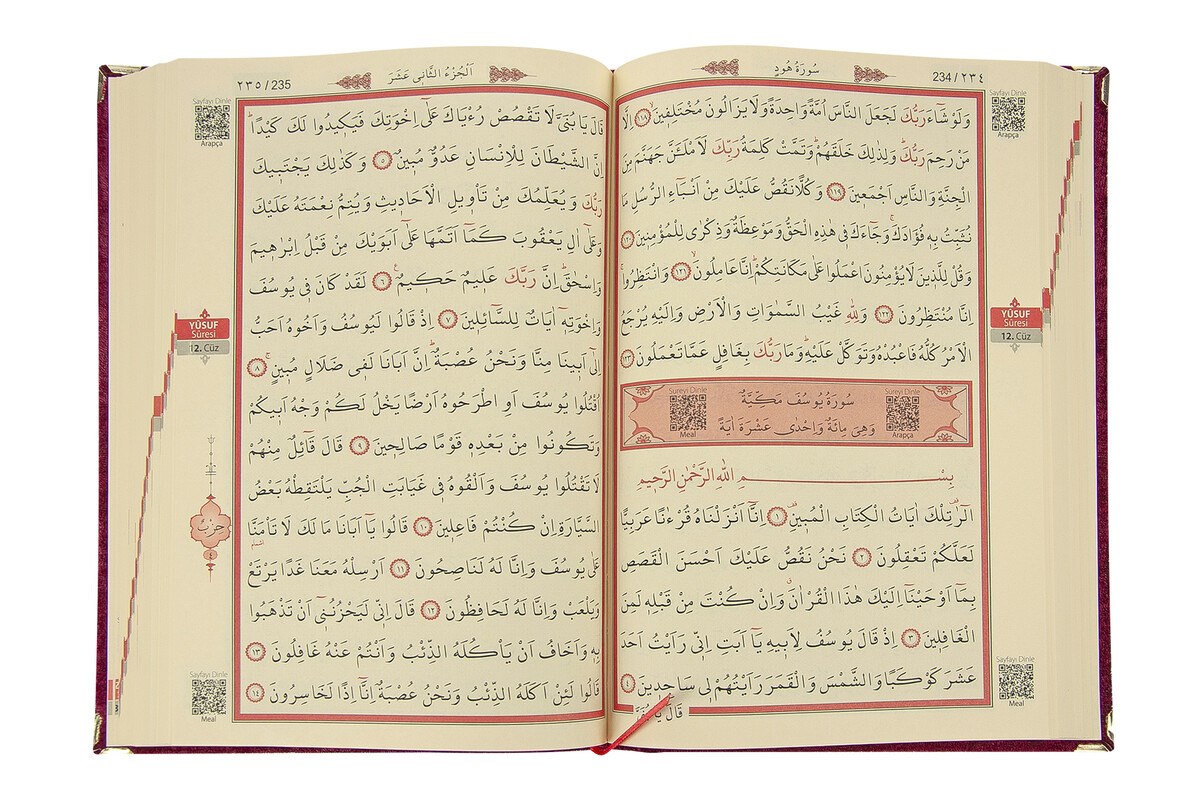 سُورَةُ هُودٍ
234 / ٢٣٤
وَلَوْ شَٓاءَ رَبُّكَ لَجَعَلَ النَّاسَ اُمَّةً وَاحِدَةً وَلَا يَزَالُونَ مُخْتَلِفٖينَۙ ﴿١١٨﴾ اِلَّا
مَنْ رَحِمَ رَبُّكَۜ وَلِذٰلِكَ خَلَقَهُمْۜ وَتَمَّتْ كَلِمَةُ رَبِّكَ لَاَمْلَـَٔنَّ جَهَنَّمَ مِنَ
الْجِنَّةِ وَالنَّاسِ اَجْمَعٖينَ ﴿١١٩﴾ وَكُلًّا نَقُصُّ عَلَيْكَ مِنْ اَنْبَٓاءِ الرُّسُلِ مَا
نُثَبِّتُ بِهٖ فُؤٰادَكَۚ وَجَٓاءَكَ فٖي هٰذِهِ الْحَقُّ وَمَوْعِظَةٌ وَذِكْرٰى لِلْمُؤْمِنٖينَ ﴿١٢٠﴾
وَقُلْ لِلَّذٖينَ لَا يُؤْمِنُونَ اعْمَلُوا عَلٰى مَكَانَتِكُمْۜ اِنَّا عَامِلُونَۙ ﴿١٢١﴾ وَانْتَظِرُواۚ
اِنَّا مُنْتَظِرُونَ ﴿١٢٢﴾ وَلِلّٰهِ غَيْبُ السَّمٰوَاتِ وَالْاَرْضِ وَاِلَيْهِ يُرْجَعُ
الْاَمْرُ كُلُّهُ فَاعْبُدْهُ وَتَوَكَّلْ عَلَيْهِۜ وَمَا رَبُّكَ بِغَافِلٍ عَمَّا تَعْمَلُونَ ﴿١٢٣﴾
سُورَةُ يُوسُفَ مَكِّيَّةٌ
وَهِيَ مِائَةٌ وَاِحْدٰى عَشْرَةَ اٰيَةً
Sureyi Dinle
Meal
Sureyi Dinle
Arapça
بِسْمِ اللّٰهِ الرَّحْمٰنِ الرَّحٖيمِ
الٓرٰ۠ تِلْكَ اٰيَاتُ الْكِتَابِ الْمُبٖينِ۠ ﴿١﴾ اِنَّٓا اَنْزَلْنَاهُ قُرْءٰنًا عَرَبِيًّا
لَعَلَّكُمْ تَعْقِلُونَ ﴿٢﴾ نَحْنُ نَقُصُّ عَلَيْكَ اَحْسَنَ الْقَصَصِ
بِمَٓا اَوْحَيْنَٓا اِلَيْكَ هٰذَا الْقُرْاٰنَۗ وَاِنْ كُنْتَ مِنْ قَبْلِهٖ لَمِنَ
الْغَافِلٖينَ ﴿٣﴾ اِذْ قَالَ يُوسُفُ لِاَبٖيهِ يَٓا اَبَتِ اِنّٖي رَاَيْتُ اَحَدَ
عَشَرَ كَوْكَبًا وَالشَّمْسَ وَالْقَمَرَ رَاَيْتُهُمْ لٖي سَاجِدٖينَ ﴿٤﴾
Sayfayı Dinle
Arapça
YÛSUF
Sûresi
12. Cüz
Sayfayı Dinle
Meal
اَلْجُزْءُ الثَّانٖي عَشَرَ
٢٣٥ / 235
قَالَ يَا بُنَيَّ لَا تَقْصُصْ رُءْيَاكَ عَلٰٓى اِخْوَتِكَ فَيَكٖيدُوا لَكَ كَيْدًاۜ
اِنَّ الشَّيْطَانَ لِلْاِنْسَانِ عَدُوٌّ مُبٖينٌ ﴿٥﴾ وَكَذٰلِكَ يَجْتَبٖيكَ
رَبُّكَ وَيُعَلِّمُكَ مِنْ تَأْوٖيلِ الْاَحَادٖيثِ وَيُتِمُّ نِعْمَتَهُ عَلَيْكَ
وَعَلٰٓى اٰلِ يَعْقُوبَ كَمَٓا اَتَمَّهَا عَلٰٓى اَبَوَيْكَ مِنْ قَبْلُ اِبْرٰهٖيمَ
وَاِسْحٰقَۜ اِنَّ رَبَّكَ عَلٖيمٌ حَكٖيمٌ۟ ﴿٦﴾ لَقَدْ كَانَ فٖي يُوسُفَ
وَاِخْوَتِهٖٓ اٰيَاتٌ لِلسَّٓائِلٖينَ ﴿٧﴾ اِذْ قَالُوا لَيُوسُفُ وَاَخُوهُ اَحَبُّ
اِلٰٓى اَبٖينَا مِنَّا وَنَحْنُ عُصْبَةٌۜ اِنَّ اَبَانَا لَفٖي ضَلَالٍ مُبٖينٍۚ ﴿٨﴾
اُقْتُلُوا يُوسُفَ اَوِ اطْرَحُوهُ اَرْضًا يَخْلُ لَكُمْ وَجْهُ اَبٖيكُمْ
وَتَكُونُوا مِنْ بَعْدِهٖ قَوْمًا صَالِحٖينَ ﴿٩﴾ قَالَ قَٓائِلٌ مِنْهُمْ
لَا تَقْتُلُوا يُوسُفَ وَاَلْقُوهُ فٖي غَيَابَتِ الْجُبِّ يَلْتَقِطْهُ بَعْضُ
السَّيَّارَةِ اِنْ كُنْتُمْ فَاعِلٖينَ ﴿١٠﴾ قَالُوا يَٓا اَبَانَا مَا لَكَ لَا تَأْمَنَّا
عَلٰى يُوسُفَ وَاِنَّا لَهُ لَنَاصِحُونَ ﴿١١﴾ اَرْسِلْهُ مَعَنَا غَدًا يَرْتَعْ
وَيَلْعَبْ وَاِنَّا لَهُ لَحَافِظُونَ ﴿١٢﴾ قَالَ اِنّٖي لَيَحْزُنُنٖٓي اَنْ تَذْهَبُوا
بِهٖ وَاَخَافُ اَنْ يَأْكُلَهُ الذِّئْبُ وَاَنْتُمْ عَنْهُ غَافِلُونَ ﴿١٣﴾
قَالُوا لَئِنْ اَكَلَهُ الذِّئْبُ وَنَحْنُ عُصْبَةٌ اِنَّٓا اِذًا لَخَاسِرُونَ ﴿١٤﴾
Sayfayı Dinle
Arapça
YÛSUF
Sûresi
12. Cüz
حِزْبُ
٤
Sayfayı Dinle
Meal